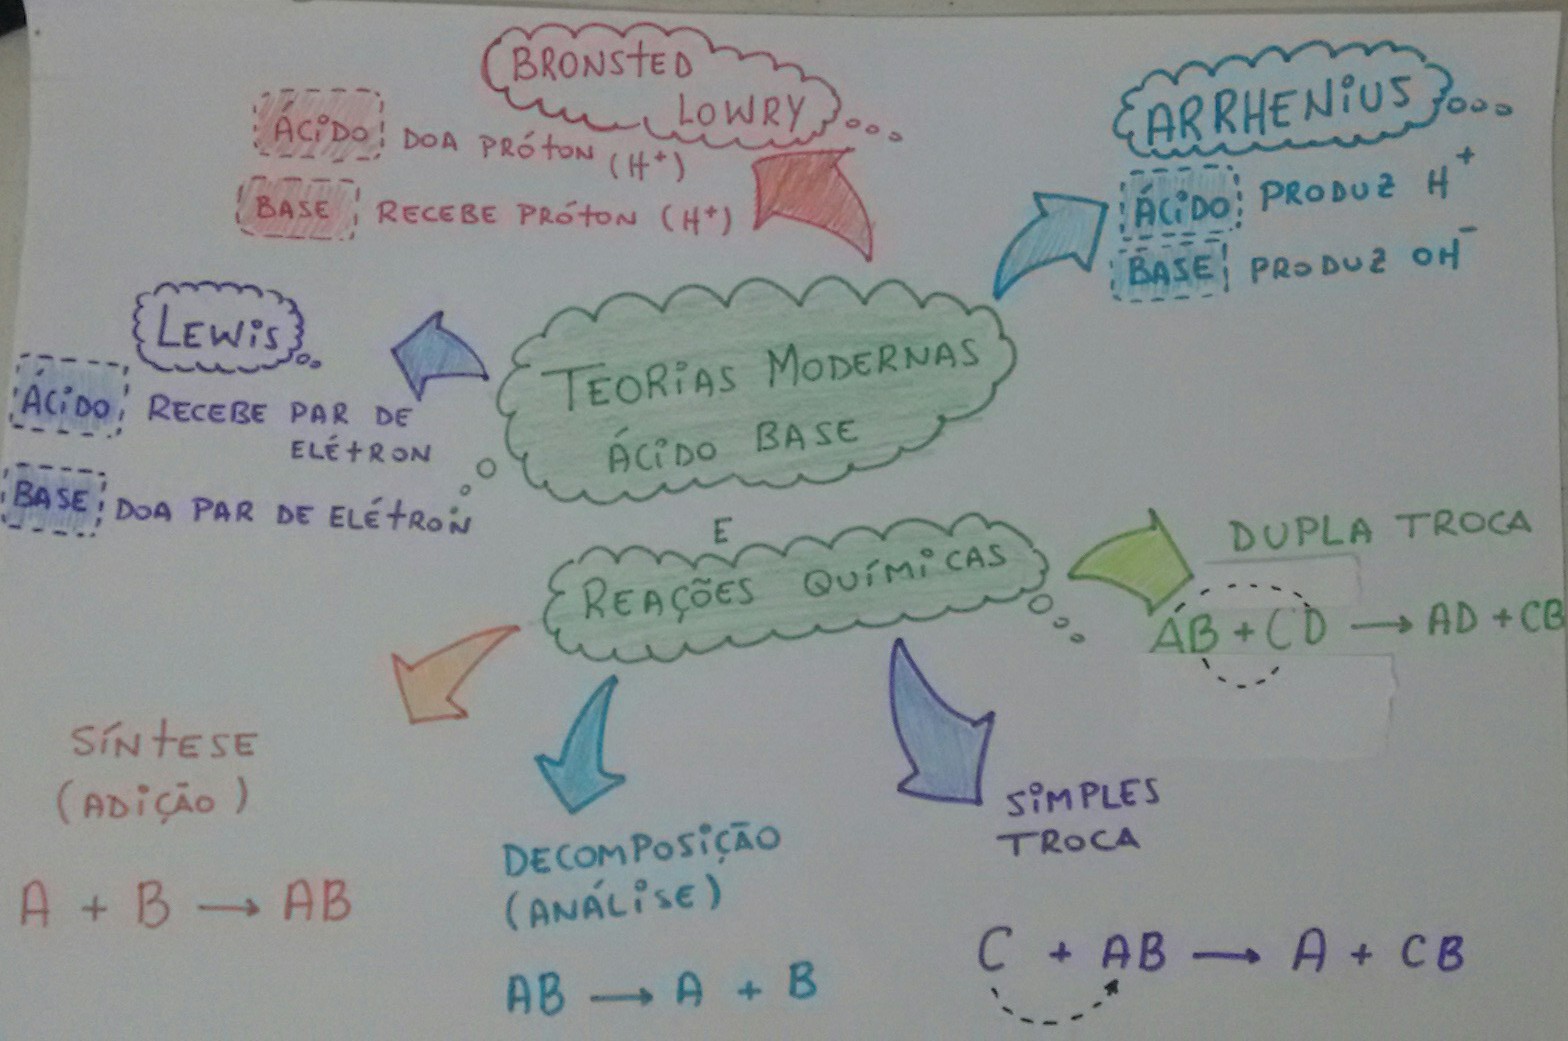 BRONSTED
LOWRY
ÁCIDO DOA PRÓTON (H⁺)
BASE RECEBE PRÓTON (H⁺)
ARRHENIUS
ÁCIDO PRODUZ H⁺
BASE PRODUZ OH⁻
LEWIS
ÁCIDO RECEBE PAR DE
ELÉTRON
BASE DOA PAR DE ELÉTRON
TEORIAS MODERNAS
ÁCIDO BASE
E
REAÇÕES QUÍMICAS
DUPLA TROCA
AB + CD → AD + CB
SÍNTESE
(ADIÇÃO)
A + B → AB
DECOMPOSIÇÃO
(ANÁLISE)
AB → A + B
SIMPLES
TROCA
C + AB → A + CB